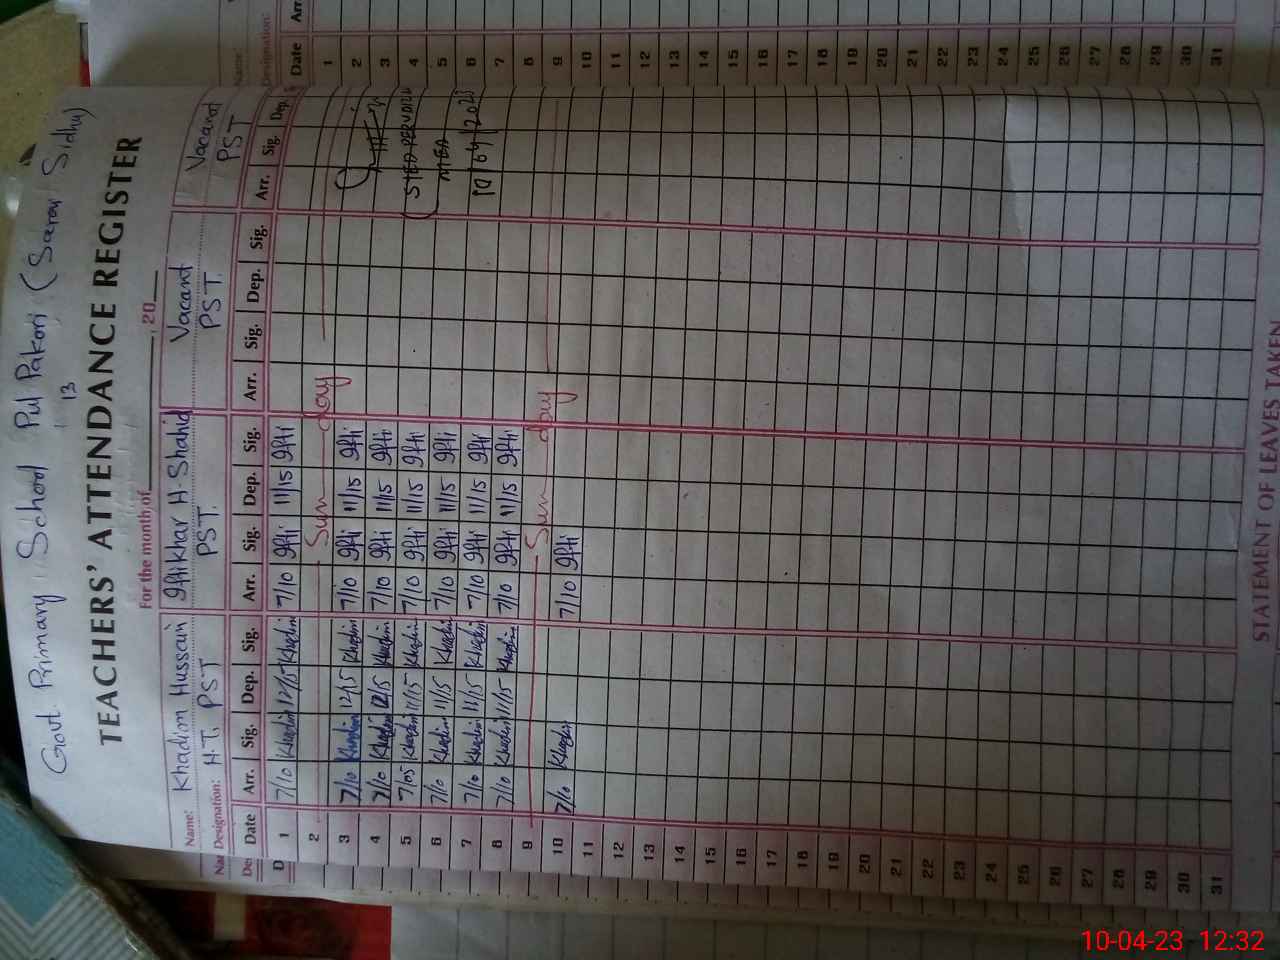 Govt. Primary School Pul Pakori (Sarai Sidhu)
13
TEACHERS' ATTENDANCE REGISTER
For the month of 20
Name: Khadim Hussain Iftikhar H Shahid Vacant Vacant
Designation: H.T. PST PST. PST. PST
Date Arr. Sig. Dep. Sig. Arr. Sig. Dep. Sig. Arr. Sig. Dep. Sig. Arr. Sig. Dep.
1 7/10 Khadim 12/15 Khadim 7/10 Ifti 11/15 Ifti
2 Sun day
3 7/10 Khadim 12/15 Khadim 7/10 Ifti 11/15 Ifti
4 7/10 Khadim 12/15 Khadim 7/10 Ifti 11/15 Ifti
5 7/05 Khadim 11/15 Khadim 7/10 Ifti 11/15 Ifti
6 7/10 Khadim 11/15 Khadim 7/10 Ifti 11/15 Ifti
7 7/10 Khadim 11/15 Khadim 7/10 Ifti 11/15 Ifti
8 7/10 Khadim 11/15 Khadim 7/10 Ifti 11/15 Ifti
9 Sun day
10 7/10 Khadim 7/10 Ifti
11
12
13
14
15
16
17
18
19
20
21
22
23
24
25
26
27
28
29
30
31
MEA
10/04/202
STATEMENT OF LEAVES TAKEN
Name:
Designation:
Date Arr.
1
2
3
4
5
6
7
8
9
10
11
12
13
14
15
16
17
18
19
20
21
22
23
24
25
26
27
28
29
30
31
10-04-23 12:32